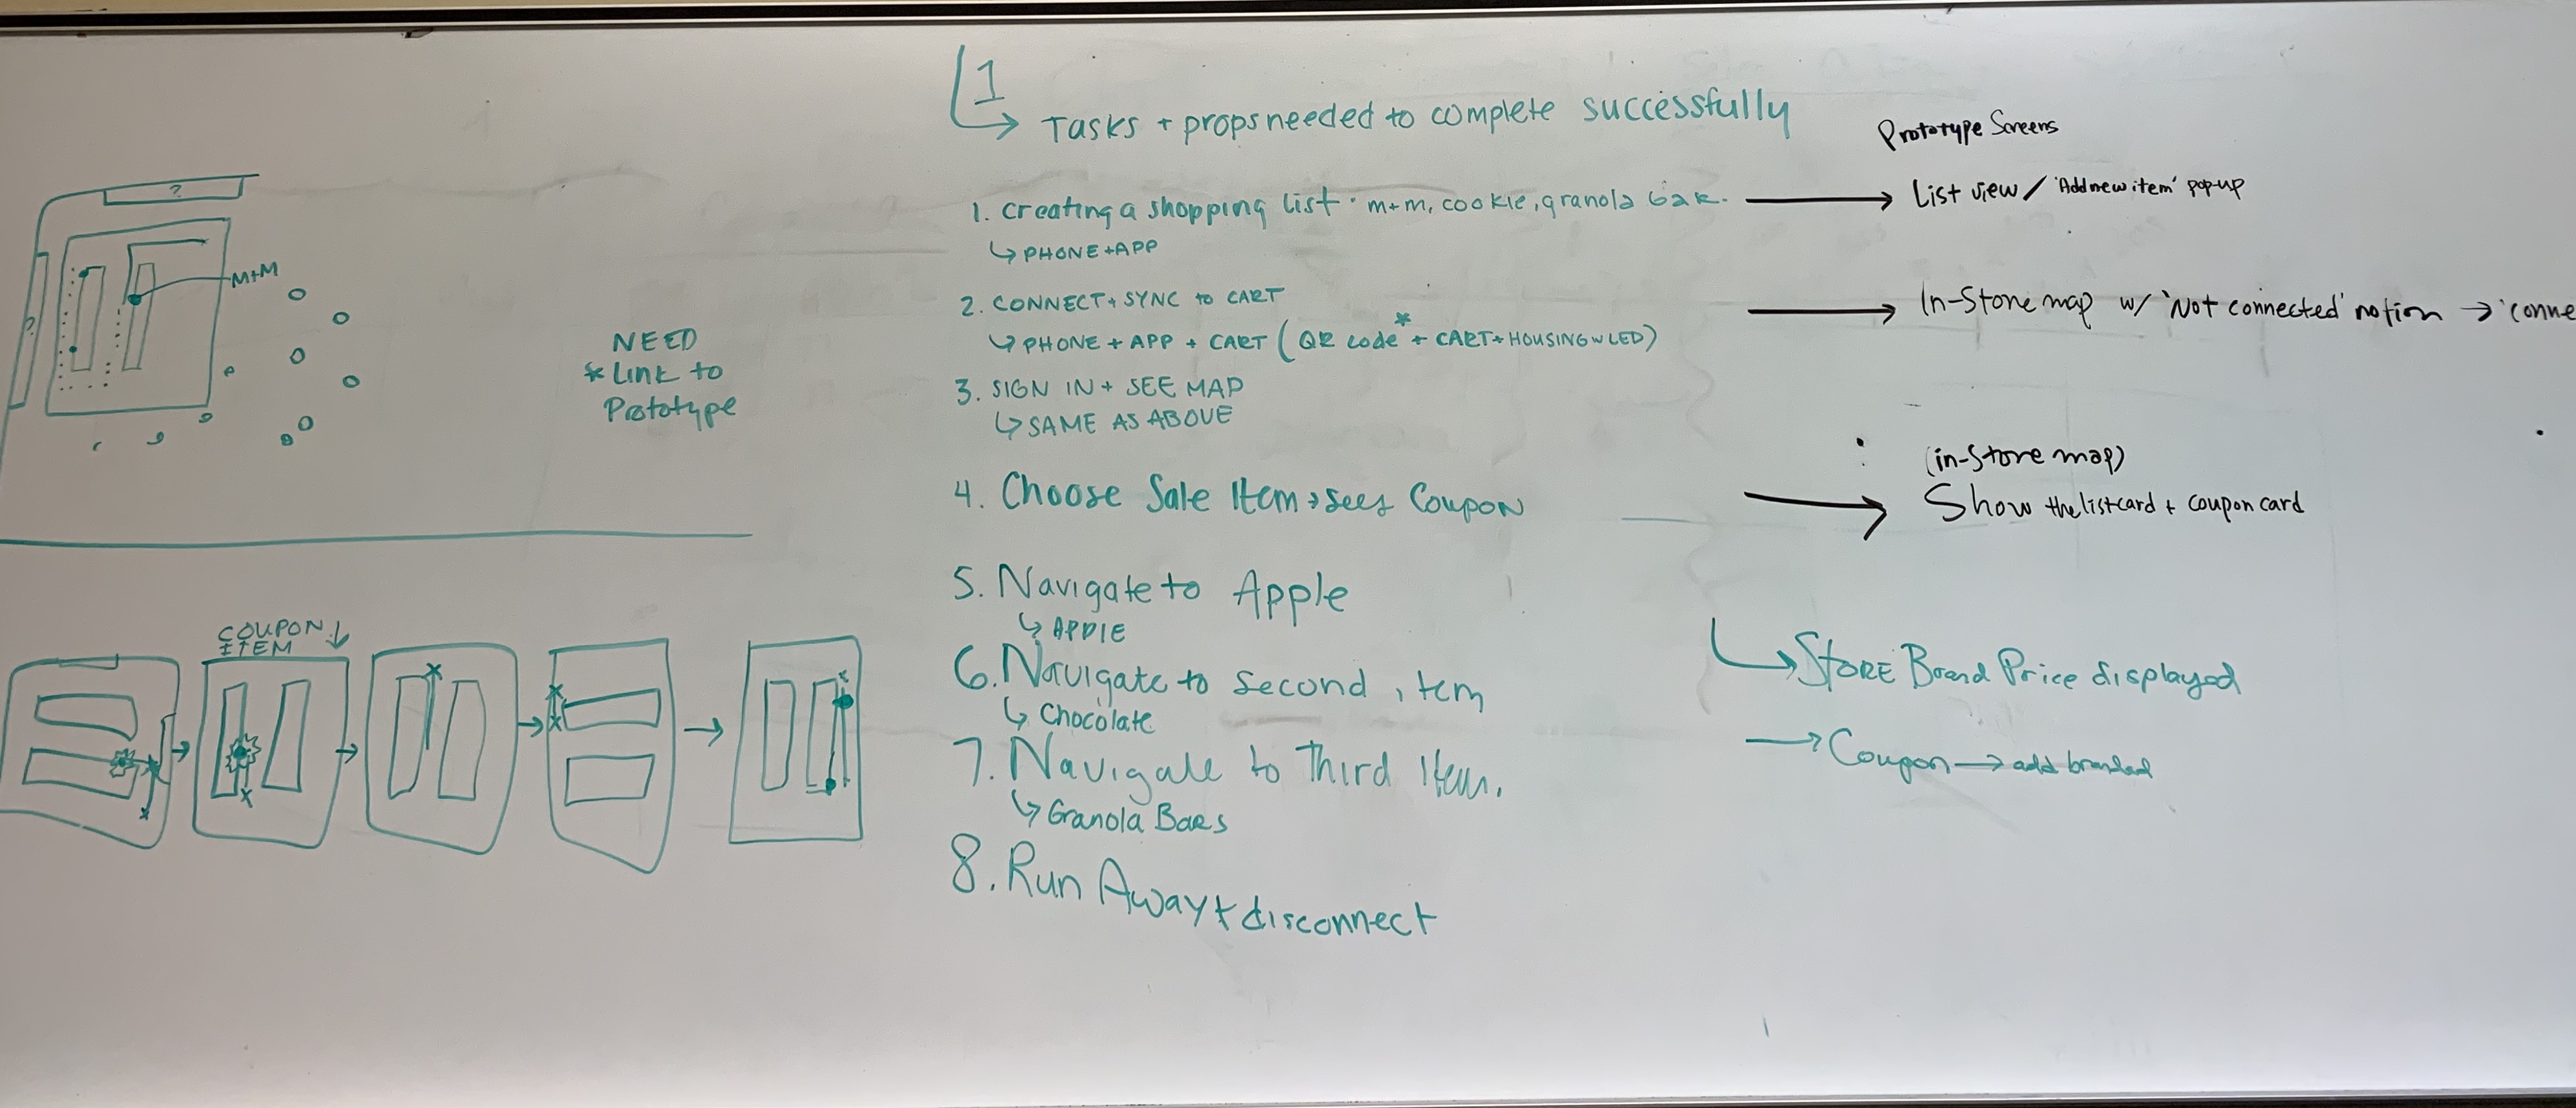 1
Tasks + props needed to complete successfully
Prototype Screens
1. creating a shopping list · m+m, cookie, granola bar.
List view / 'Add new item' pop-up
↳ PHONE + APP
2. CONNECT + SYNC to CART
In-Store map w/ 'Not connected' notion → 'conne
↳ PHONE + APP + CART (QR code * + CART + HOUSING w LED)
3. SIGN IN + SEE MAP
↳ SAME AS ABOVE
4. Choose Sale Item → sees Coupon
(in-Store map)
Show the list card + coupon card
5. Navigate to Apple
↳ APPLE
6. Navigate to second item
↳ Chocolate
7. Navigate to Third Item.
↳ Granola Bars
8. Run Away + disconnect
STORE Brand Price displayed
Coupon → add branded
?
?
M+M
NEED
* Link to
Prototype
COUPON ↓
ITEM